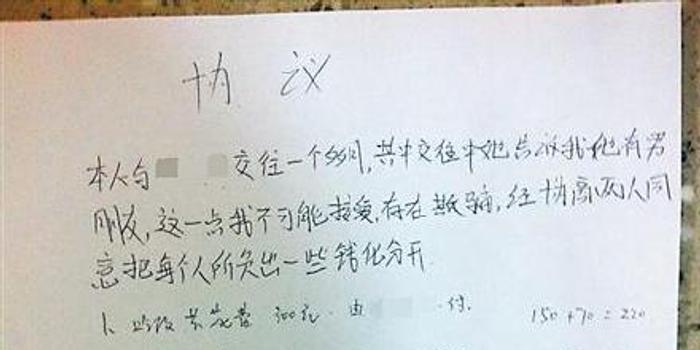 协 议
本人与 交往一个多月,其中交往中她告诉我她有男
朋友,这一点我不可能接受,存在欺骗,经协商两人同
意把每个人所负出一些钱化分开
1、 共花费 300元。由 付. 150+70=220